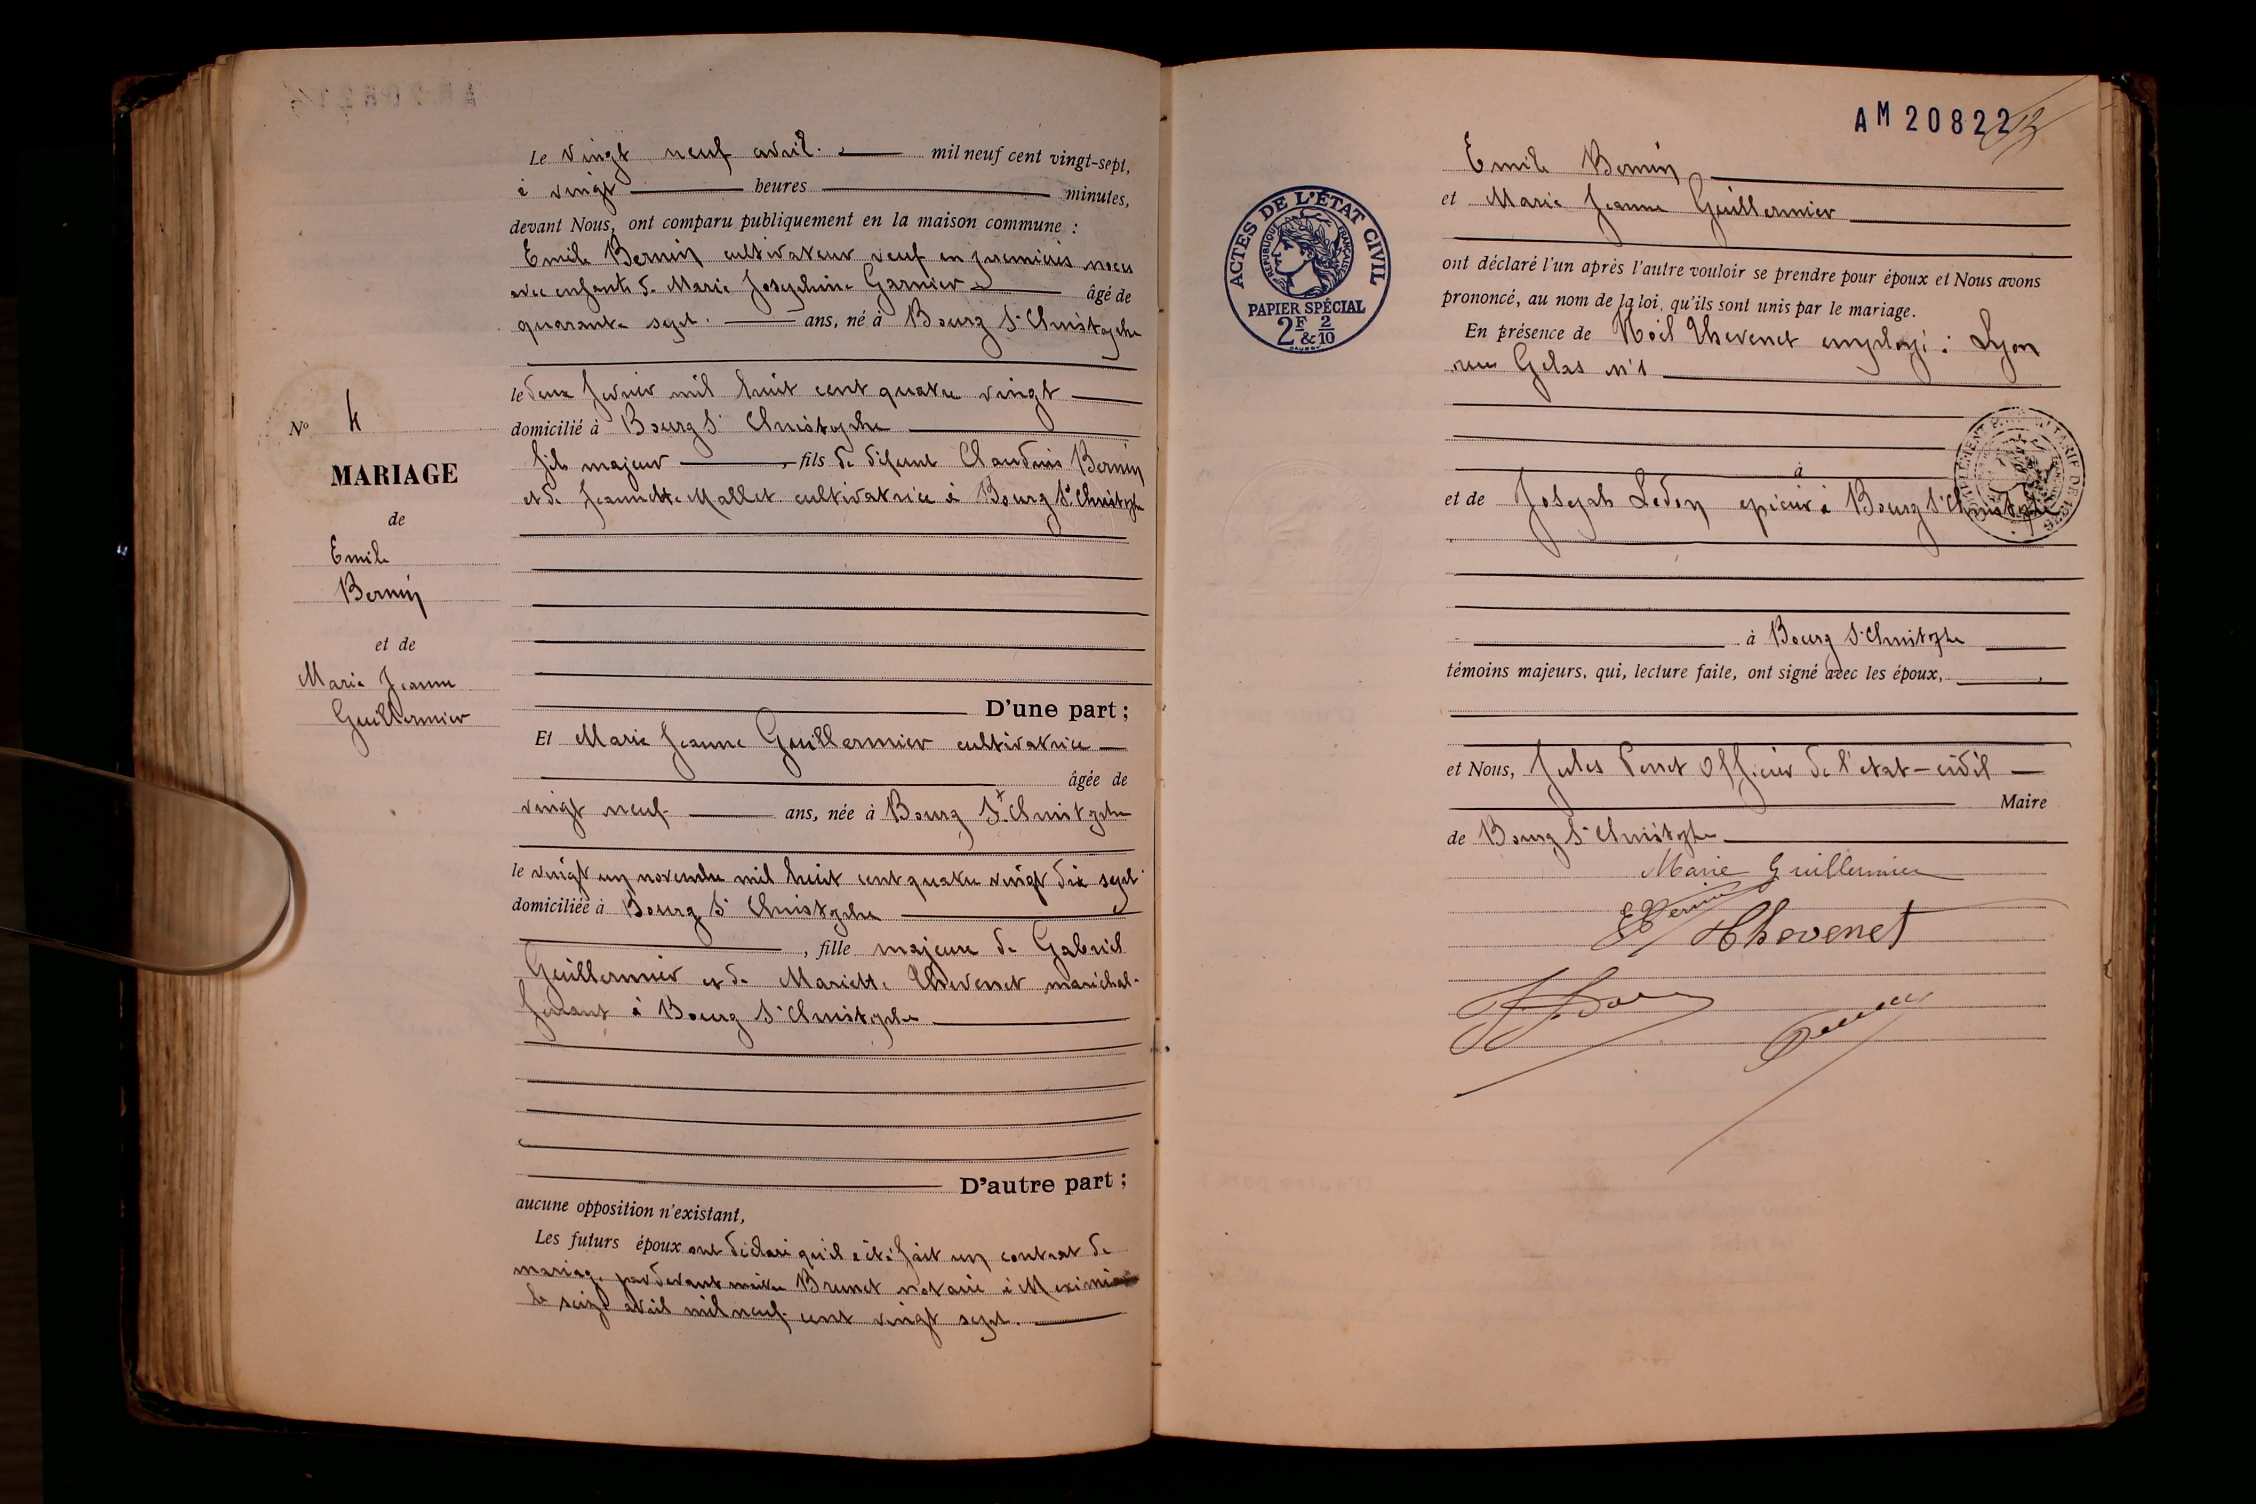 Le vingt neuf avril. mil neuf cent vingt-sept,
à vingt heures minutes,
devant Nous, ont comparu publiquement en la maison commune :
Emile Bernin cultivateur veuf en premières noces
avec enfants de Marie Joséphine Garnier âgé de
quarante sept. ans, né à Bourg St Christophe
le deux février mil huit cent quatre vingt
domicilié à Bourg St Christophe
fils majeur, fils de défunt Claudius Bernin
et de Jeannette Mallet cultivatrice à Bourg St Christophe
No 4
MARIAGE
de
Emile
Bernin
et de
Marie Jeanne
Guillermier
D'une part ;
Et Marie Jeanne Guillermier cultivatrice
âgée de
vingt neuf ans, née à Bourg St Christophe
le vingt un novembre mil huit cent quatre vingt dix sept
domiciliée à Bourg St Christophe
, fille majeure de Gabriel
Guillermier et de Mariette Thevenet maréchal-
ferrant à Bourg St Christophe
D'autre part ;
aucune opposition n'existant,
Les futurs époux ont déclaré qu'il a été fait un contrat de
mariage par devant maitre Brunet notaire à
le seize avril mil neuf cent vingt sept.
AM 20822
Emile Bernin
et Marie Jeanne Guillermier
ont déclaré l'un après l'autre vouloir se prendre pour époux et Nous avons
prononcé, au nom de la loi, qu'ils sont unis par le mariage.
En présence de Noël Thevenet employé à Lyon
rue Gelas n°1
à
et de Joseph Ledon epicier à Bourg St Christophe
à Bourg St Christophe
témoins majeurs, qui, lecture faite, ont signé avec les époux,
et Nous, Jules Perret Officier de l'etat-civil
Maire
de Bourg St Christophe
Marie Guillermier
E Bernin
Thevenet
ACTES DE L'ÉTAT CIVIL
RÉPUBLIQUE FRANÇAISE
PAPIER SPÉCIAL
2F & 2/10